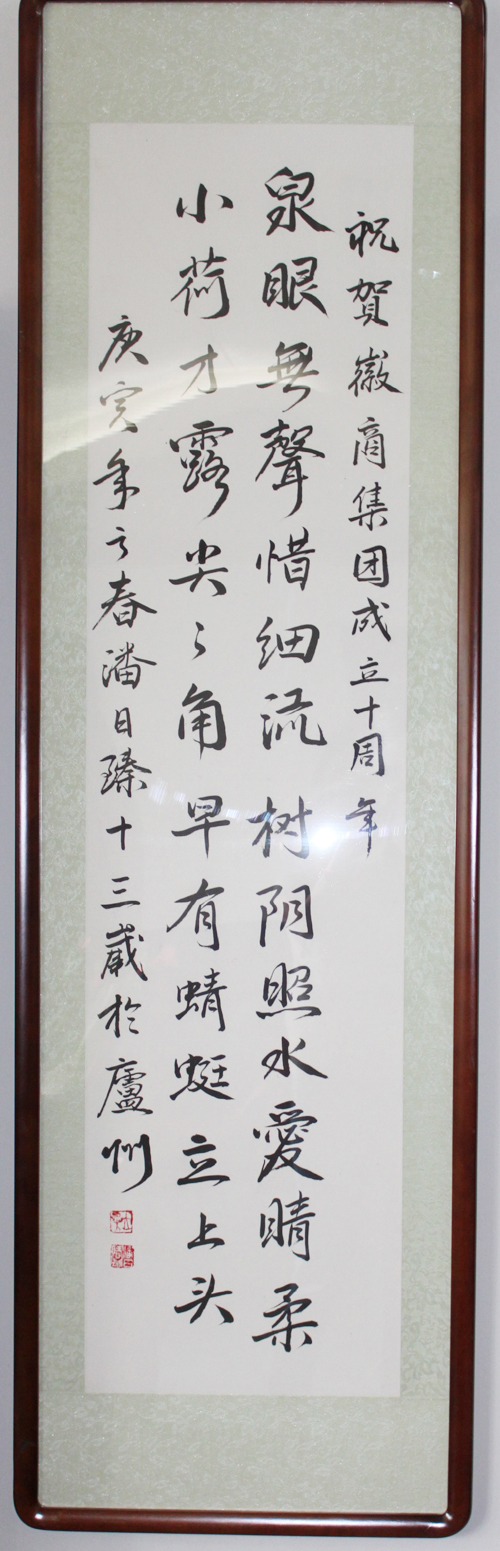 祝贺徽商集团成立十周年
泉眼無聲惜细流树阴照水愛晴柔
小荷才露尖々角早有蜻蜓立上头
庚寅年之春潘日臻十三歲於廬州